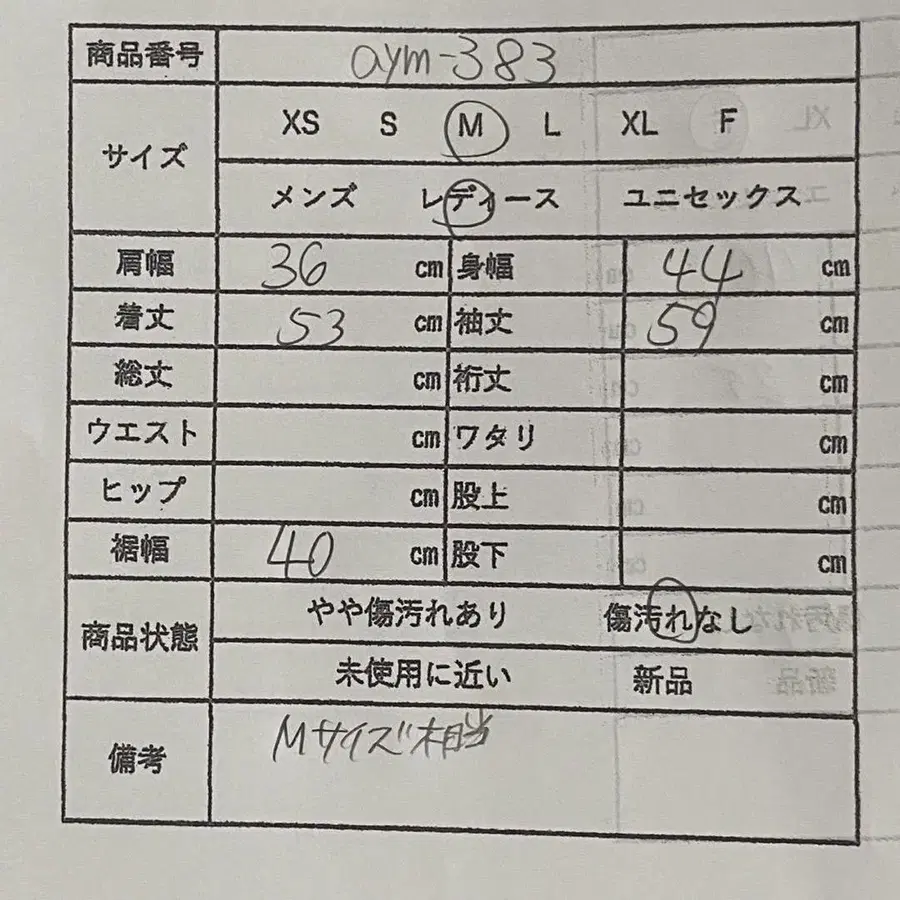 商品番号 aym-383
サイズ XS S M L XL F
メンズ レディース ユニセックス
肩幅 36 cm 身幅 44 cm
着丈 53 cm 袖丈 59 cm
総丈 cm 裄丈 cm
ウエスト cm ワタリ cm
ヒップ cm 股上 cm
裾幅 40 cm 股下 cm
商品状態 やや傷汚れあり 傷汚れなし
未使用に近い 新品
備考 Mサイズ相当